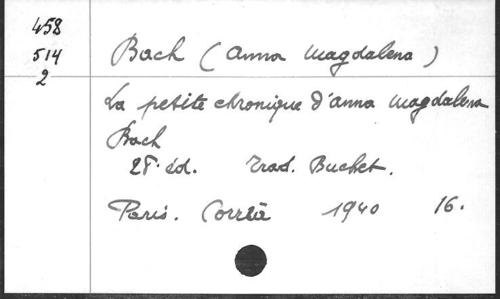 458
514
2
Bach (Anna Magdalena)
La petite chronique d'Anna Magdalena
Bach
28. éd. Trad. Buchet.
Paris. Corrêa 1940 16.